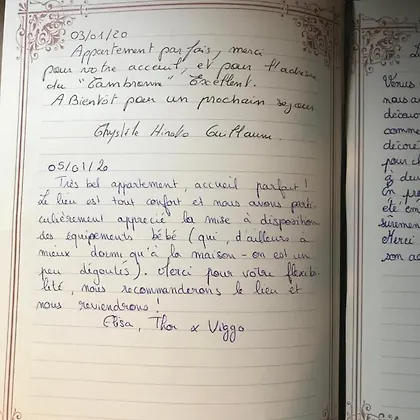 03/01/20
Appartement parfais, merci
pour votre acceuil, et pour l'adresse
du "Cambronne" Excellent.
A Bientôt pour un prochain séjour
Guillaume.
05/01/20
Très bel appartement, accueil parfait !
Le lieu est tout confort et nous avons parti-
culièrement apprécié la mise à disposition
des équipements bébé (qui, d'ailleurs a
mieux dormi qu'à la maison - on est un
peu dégoutés). Merci pour votre flexibi-
lité, nous recommanderons le lieu et
nous reviendrons !
Elisa, Thor & Viggo
Venus
nous a
décou
comme
décoré
pour ch
à deu
En pre
été
sûremen
Merci
son ac